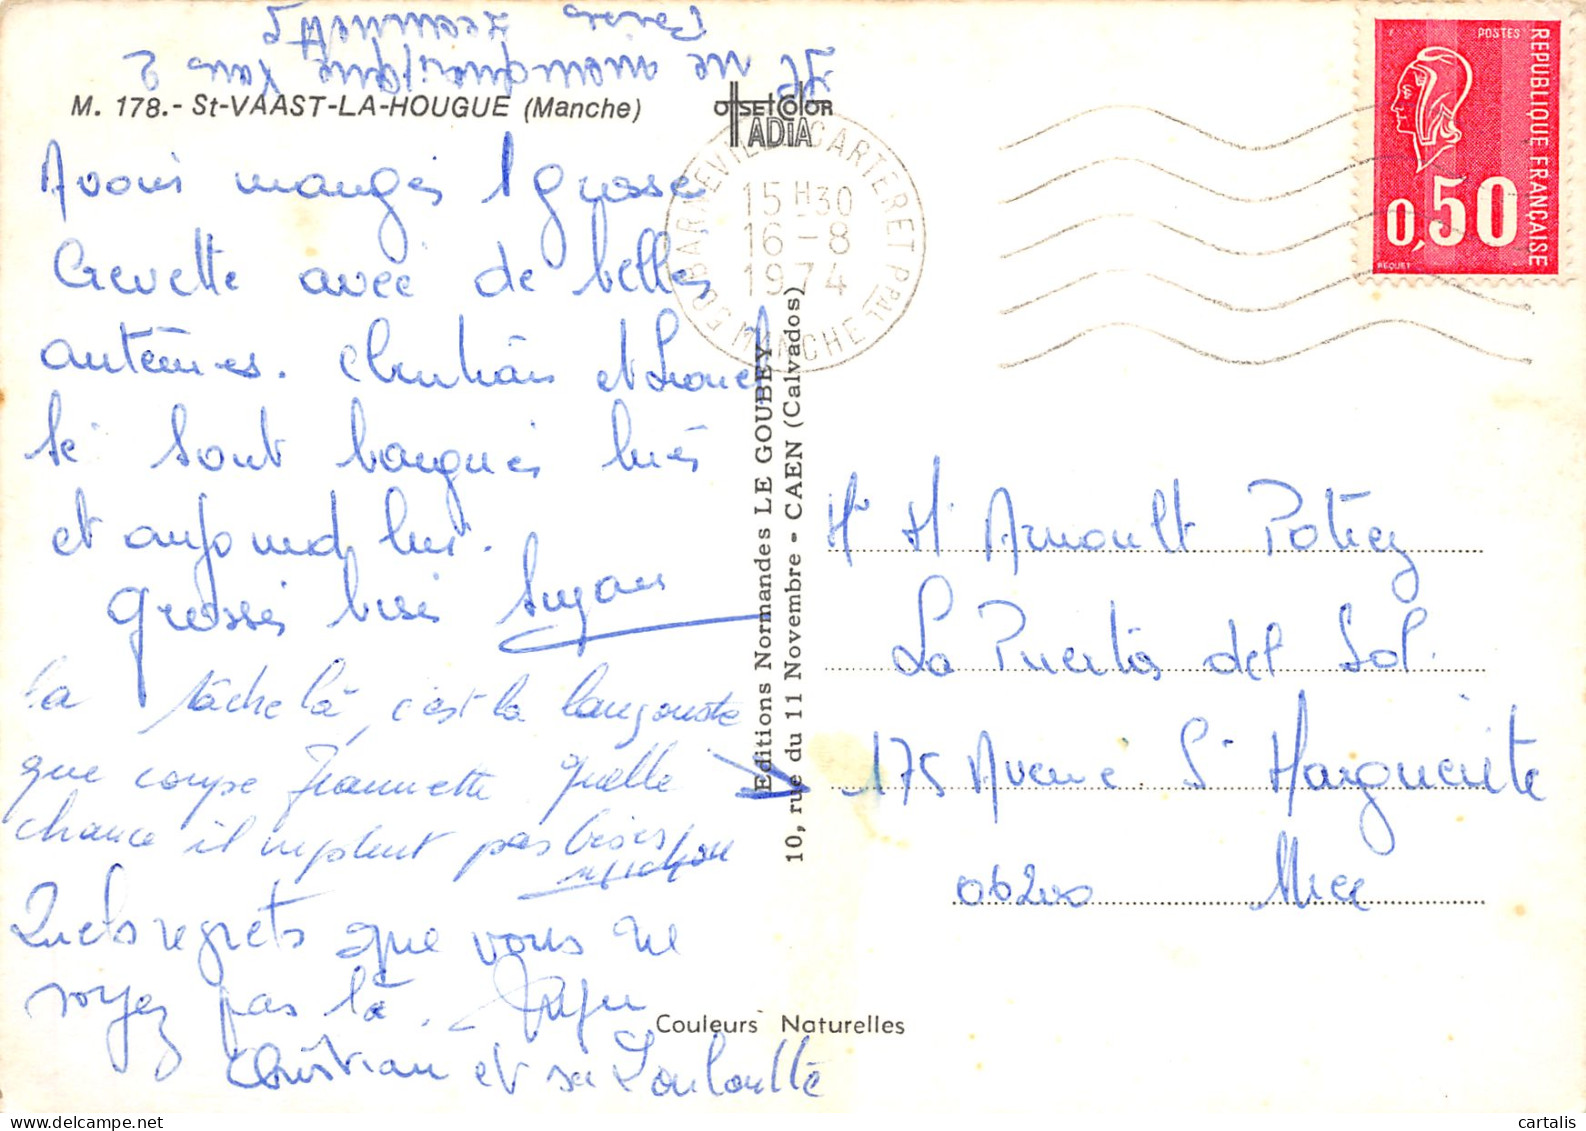 M. 178.- St-VAAST-LA-HOUGUE (Manche)
offset color
IADIA
Avons mangés 1 grosse
Crevette avec de belles
antennes. Christian et Lionel
se sont baignés hier
et aujourd'hui.
grosses bises Suzan
La tâche là, c'est la langouste
que coupe Jeannette quelle
chance il ne pleut pas bises
Quels regrets que vous ne
soyez pas là.
Christian et sa Louloutte
Il ne manquait que vous 2
Jeannette
Editions Normandes LE GOUBEY
10, rue du 11 Novembre - CAEN (Calvados)
50 BARNEVILLE-CARTERET PPAL
MANCHE
15 H 30
16 - 8
1974
POSTES
REPUBLIQUE FRANÇAISE
0,50
BEQUET
Mr Mme Arnoult Potiez
La Puerta del Sol
175 Avenue Ste Marguerite
06200 Nice
Couleurs Naturelles
cartalis